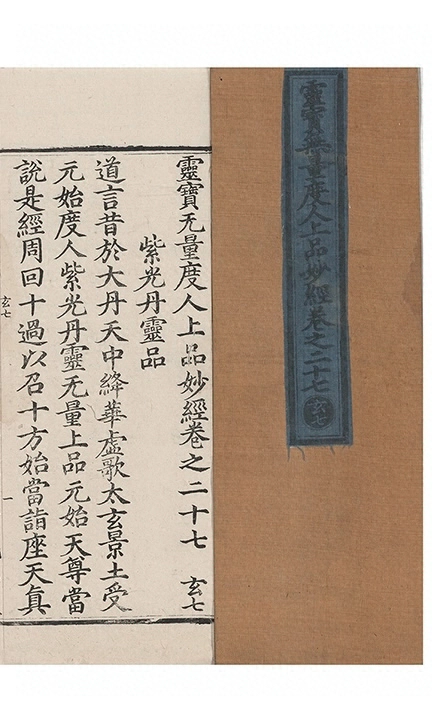 靈寶無量度人上品妙經卷之二十七 玄七
靈寶无量度人上品妙經卷之二十七 玄七
紫光丹靈品
道言昔於大丹天中絳華虛歌太玄景土受
元始度人紫光丹靈无量上品元始天尊當
說是經周回十過以召十方始當詣座天真
玄七
一